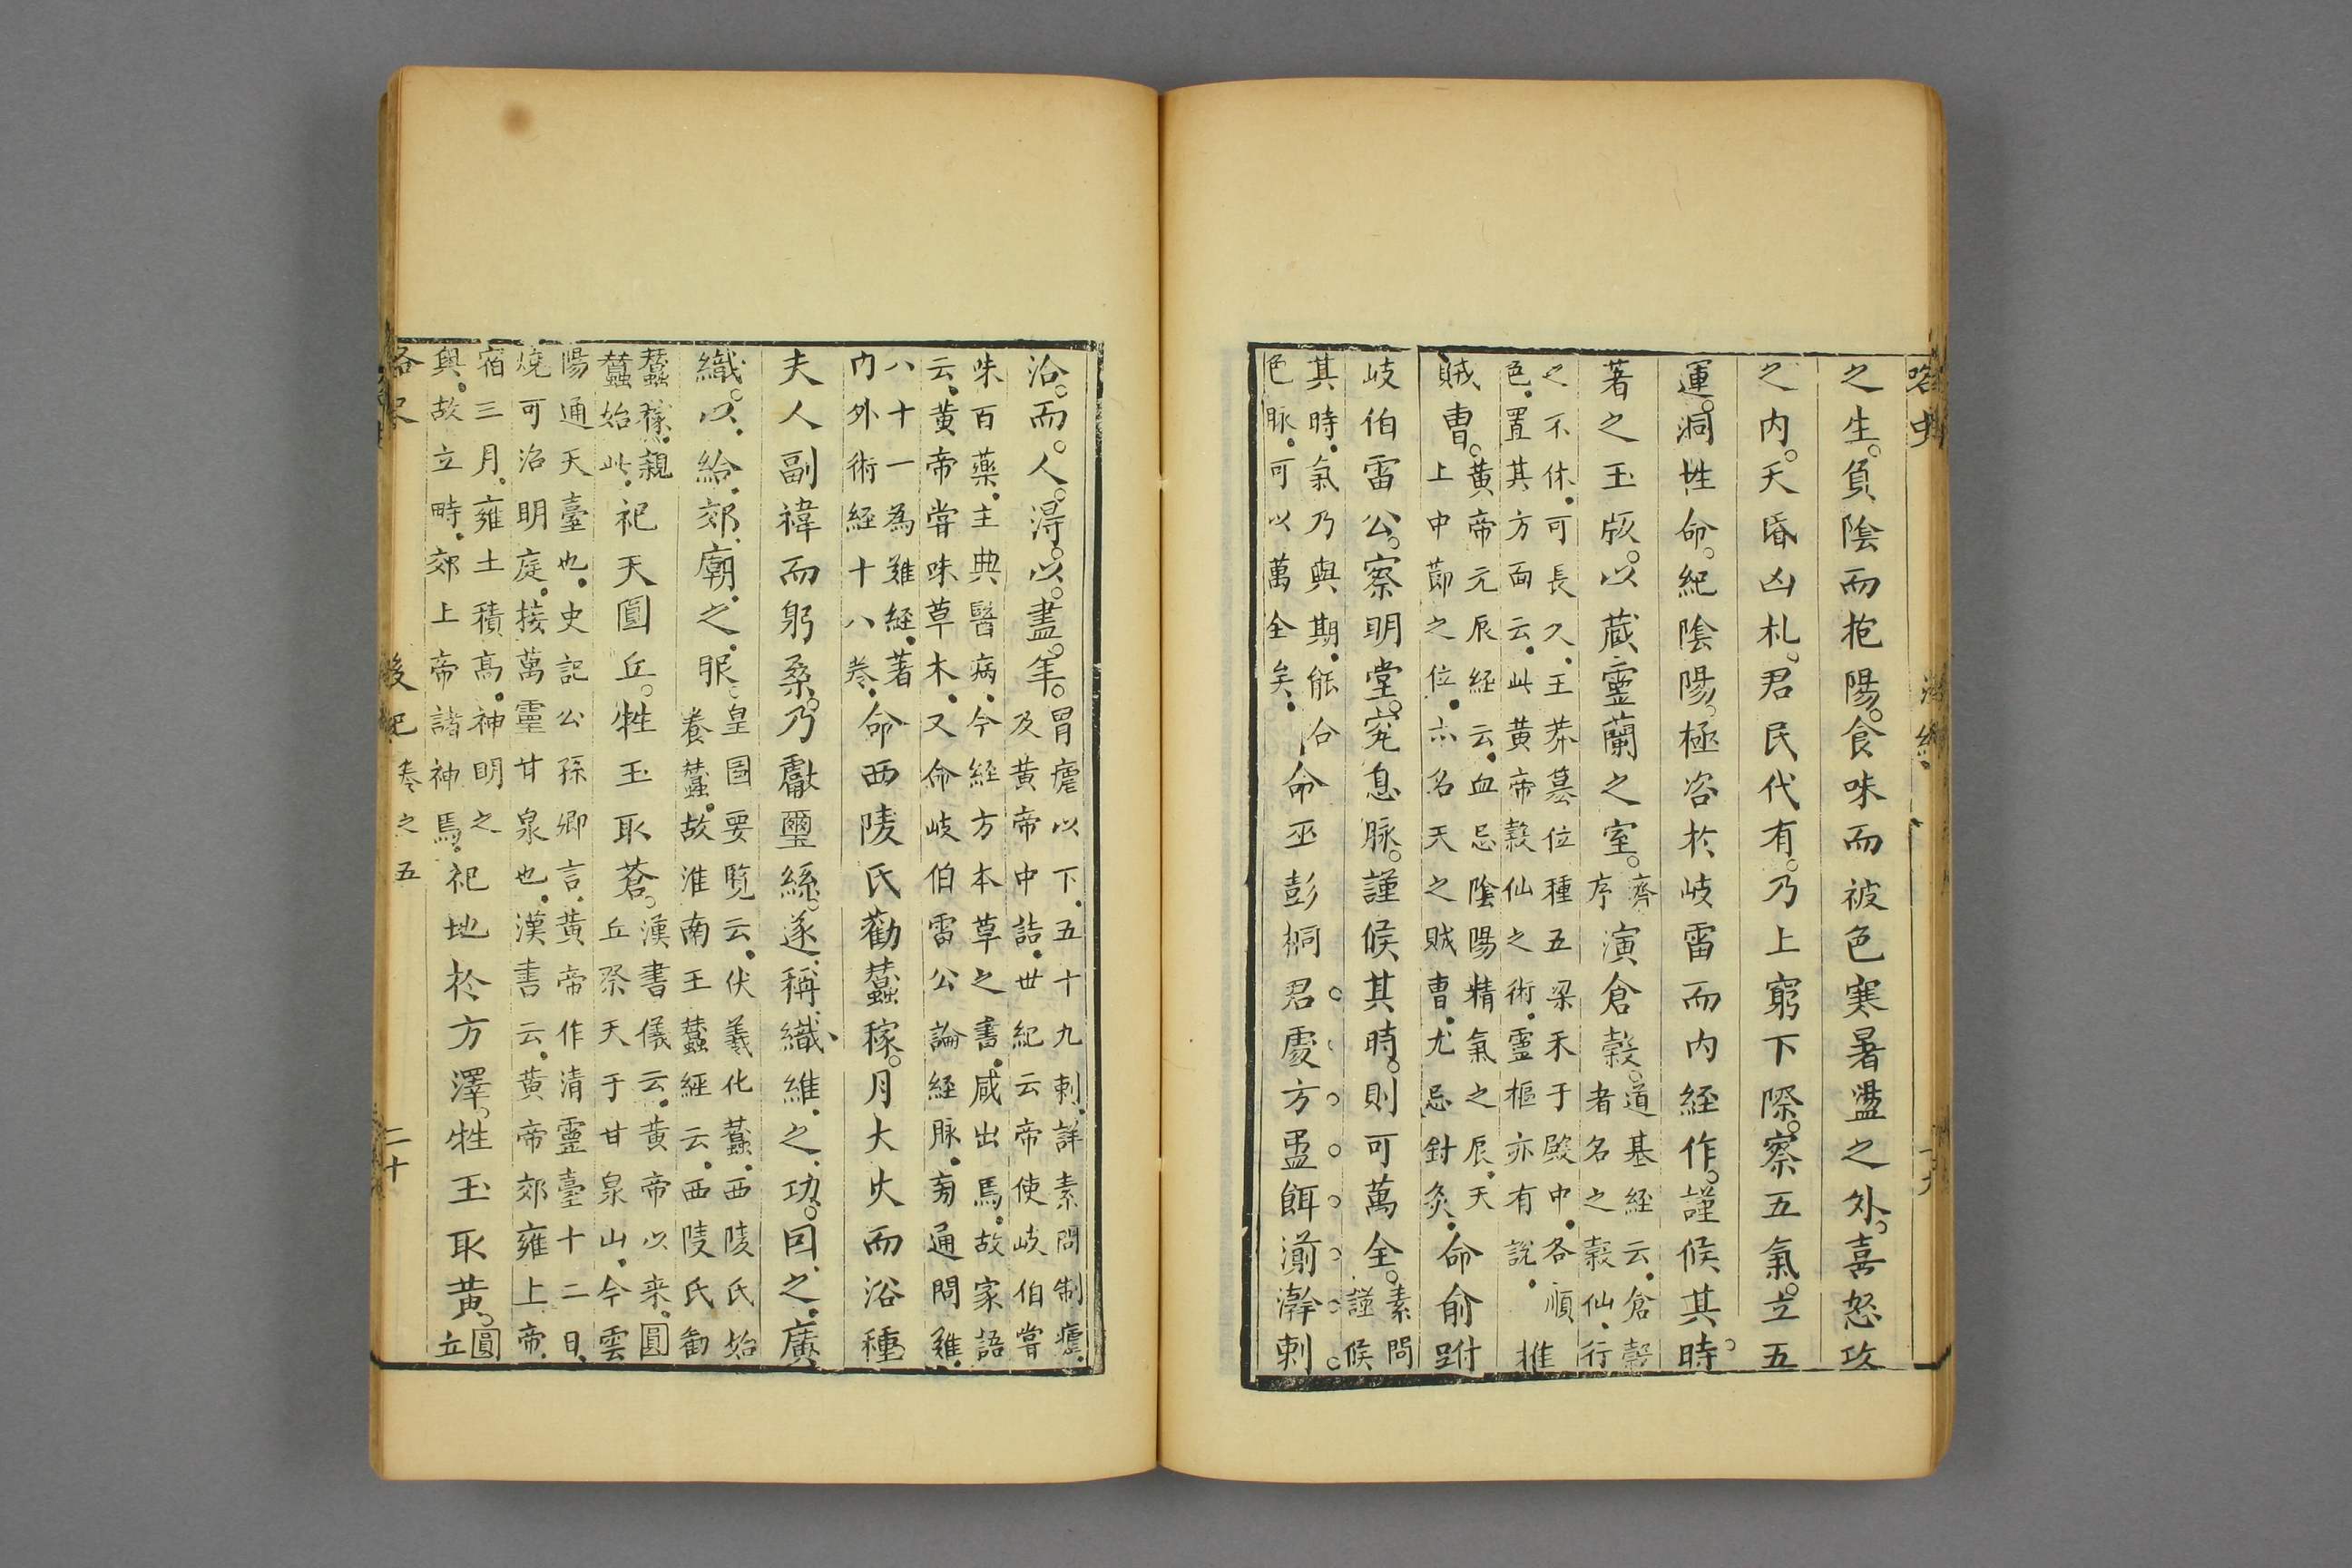 之生。負陰而抱陽。食味而被色寒暑盪之外。喜怒攻
之内。夭昏凶札。君民代有。乃上窮下際。察五氣。立五
運。洞性命。紀陰陽。極咨於岐雷而内經作。謹候其時。
著之玉版。以藏靈蘭之室。
齊
序
演倉榖。
道基經云。倉榖
者名之榖仙。行
之不休。可長久。王莽墓位種五梁禾于殿中。各順
色。置其方面云。此黄帝榖仙之術。靈樞亦有說。
推
賊曹。
黄帝元辰經云。血忌陰陽精氣之辰。天
上中節之位。亦名天之賊曹。尤忌針灸。
命俞跗
岐伯雷公。察明堂。究息脉。謹候其時。則可萬全。
素問
謹候
其時。氣乃與期。能合
色脉。可以萬全矣。
命巫彭桐君處方盄餌湔澣刺
治。而。人。得。以。盡。年。
胃瘧以下。五十九刺。詳素問制瘧。
及黄帝中誥。世紀云帝使岐伯嘗
味百藥。主典醫病。今經方本草之書。咸出焉。故家語
云。黄帝嘗味草木。又命岐伯雷公論經脉。旁通問難。
八十一為難經。著
内外術經十八卷。
命西陵氏勸蠶稼。月大火而浴種
夫人副褘而躬桑。乃獻璽絲。遂稱織維之功。因之廣
織。以給郊廟之服。
皇圖要覽云。伏羲化蠶。西陵氏始
養蠶。故淮南王蠶經云。西陵氏勸
蠶稼。親
蠶始此。
祀天圓丘。牲玉取蒼。
漢書儀云。黄帝以来。圓
丘祭天于甘泉山。今雲
陽通天臺也。史記公孫卿言。黄帝作清靈臺十二日。
燒可治明庭。接萬靈甘泉也。漢書云。黄帝郊雍上帝。
宿三月。雍土積高。神明之
與。故立畤。郊上帝諸神焉。
祀地於方澤。牲玉取黄。
圓
立
後紀卷之五
二十